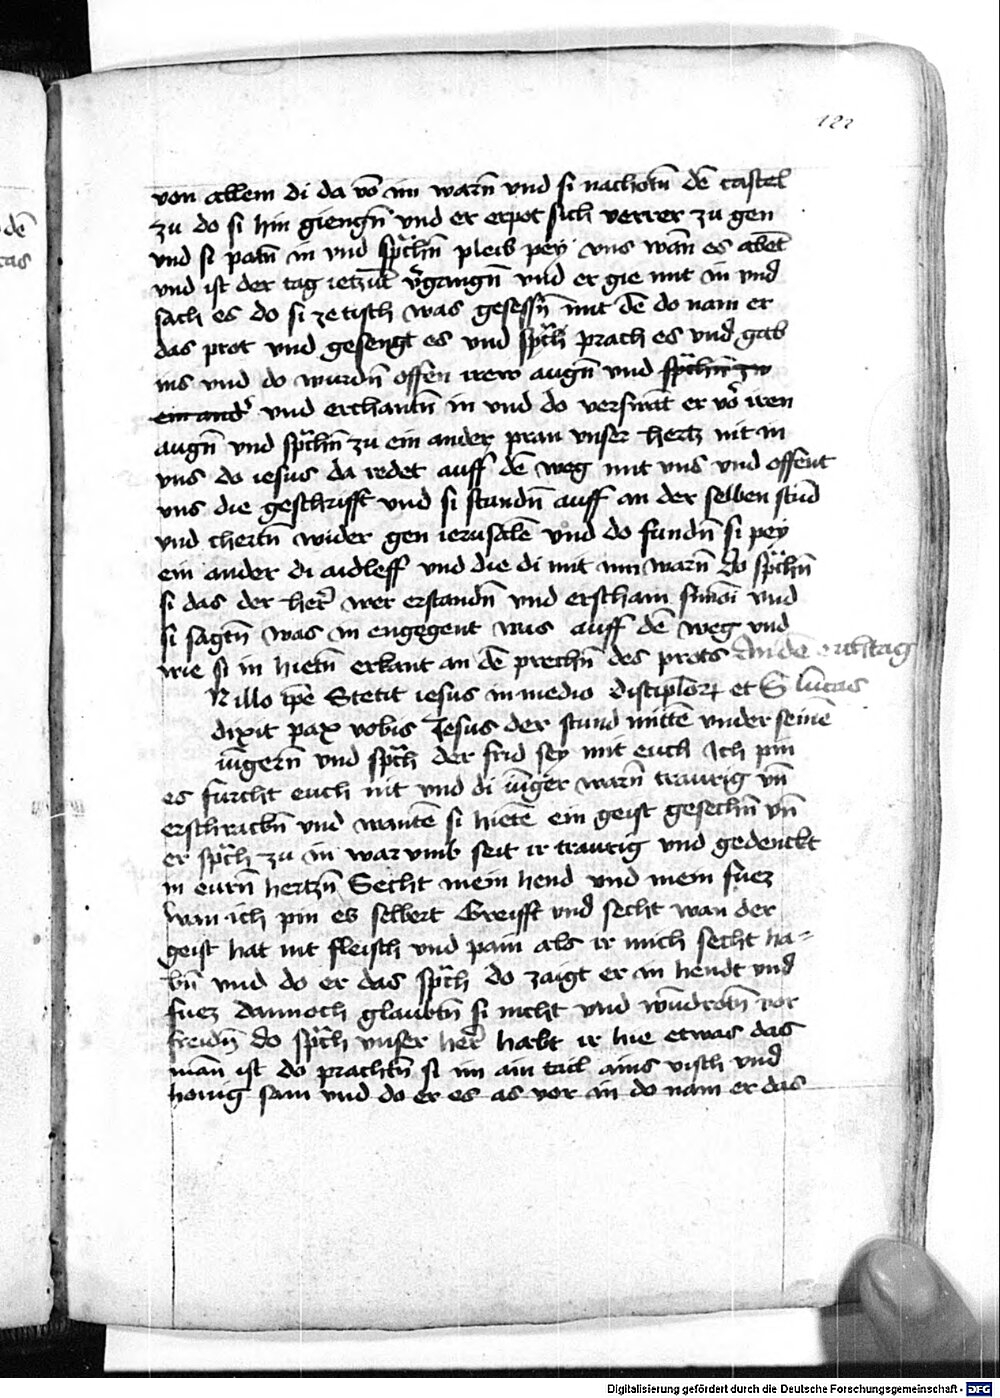 122
von allem di da võ im warñ vnd si nachotñ dē castel
zu do si hin giengñ vnd er erpot sich verrer zu gen
vnd si patñ in vnd sprachñ pleib pey vns wān es abēt
vnd ist der tag ietzūt vergangñ vnd er gie mit in vnd
sach es do si ze tisch was gesessñ mit dē do nam er
das prot vnd gesengt es vnd sprach prach es vnd gab
ins vnd do wurdñ offen irew augñ vnd sprachñ zw
ein ander vnd erchantñ in vnd do verswāt er võ iren
augñ vnd sprachñ zu ein ander pran vnser hertz nit in
vns do iesus da redet auff dē weg mit vns vnd offent
vns die geschrifft vnd si stundñ auff an der selben stūd
vnd chertñ wider gen ierusalē vnd do fundñ si pey
ein ander di aidleff vnd die di mit im warñ do sprachñ
si das der her wer erstandñ vnd erschain simōi vnd
si sagtñ was in engegent wus auff dē weg vnd
wie si in hietñ erkant an dē prechñ des prots An dē erichtag
N illo tpē Stetit iesus in medio discipulorum et S lucas
dixit pax vobis Jesus der stund mittē vnder seinē
iūgerñ vnd sprach der frid sey mit euch Ich pin
es furcht euch nit vnd di iūger warñ traurig vñ
erschrackñ vnd wantē si hietē ein geist gesechñ vñ
er sprach zu in war vmb seit ir traurig vnd gedenckt
in eurñ hertzñ Secht mein hend vnd mein fuez
wan ich pin es selbert Greifft vnd secht wan der
geist hat nit fleisch vnd pain als ir mich secht ha=
bñ vnd do er das sprach do zaigt er in hendt vnd
fuez dannoch glaubtñ si nicht vnd wūdrotñ vor
freidñ do sprach vnser her habt ir hie etwas das
mān ist do prachtñ si im ain tail ains visch vnd
honig sam vnd do er es as vor in do nam er das
dē
cas
Digitalisierung gefördert durch die Deutsche Forschungsgemeinschaft - DFG